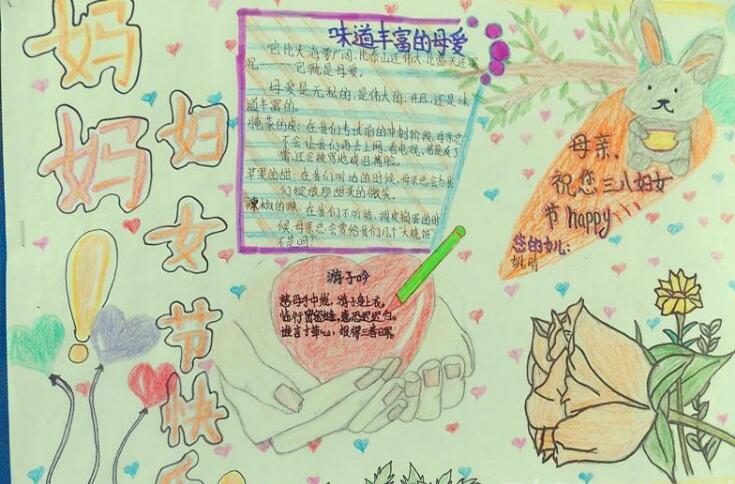 妈妈
妇女节快乐
味道丰富的母爱
它比大海要广阔,比泰山还伟大,比蓝天还要
——它就是母爱。
母爱是无私的,是伟大的,并且,还是味
道丰富的。
在我们考试前的冲刺阶段,母亲总
不会让我们再去上网、看电视,
苹果的甜:在我们听话的时候,母亲总会为我
们绽放那甜美的微笑。
辣椒的辣:在我们不听话,调皮捣蛋的时
候,母亲总会赏给我们几个"大烧饼",
不是吗?
游子吟
慈母手中线,游子身上衣。
临行密密缝,意恐迟迟归。
谁言寸草心,报得三春晖。
母亲,
祝您三八妇女
节happy
您的女儿: